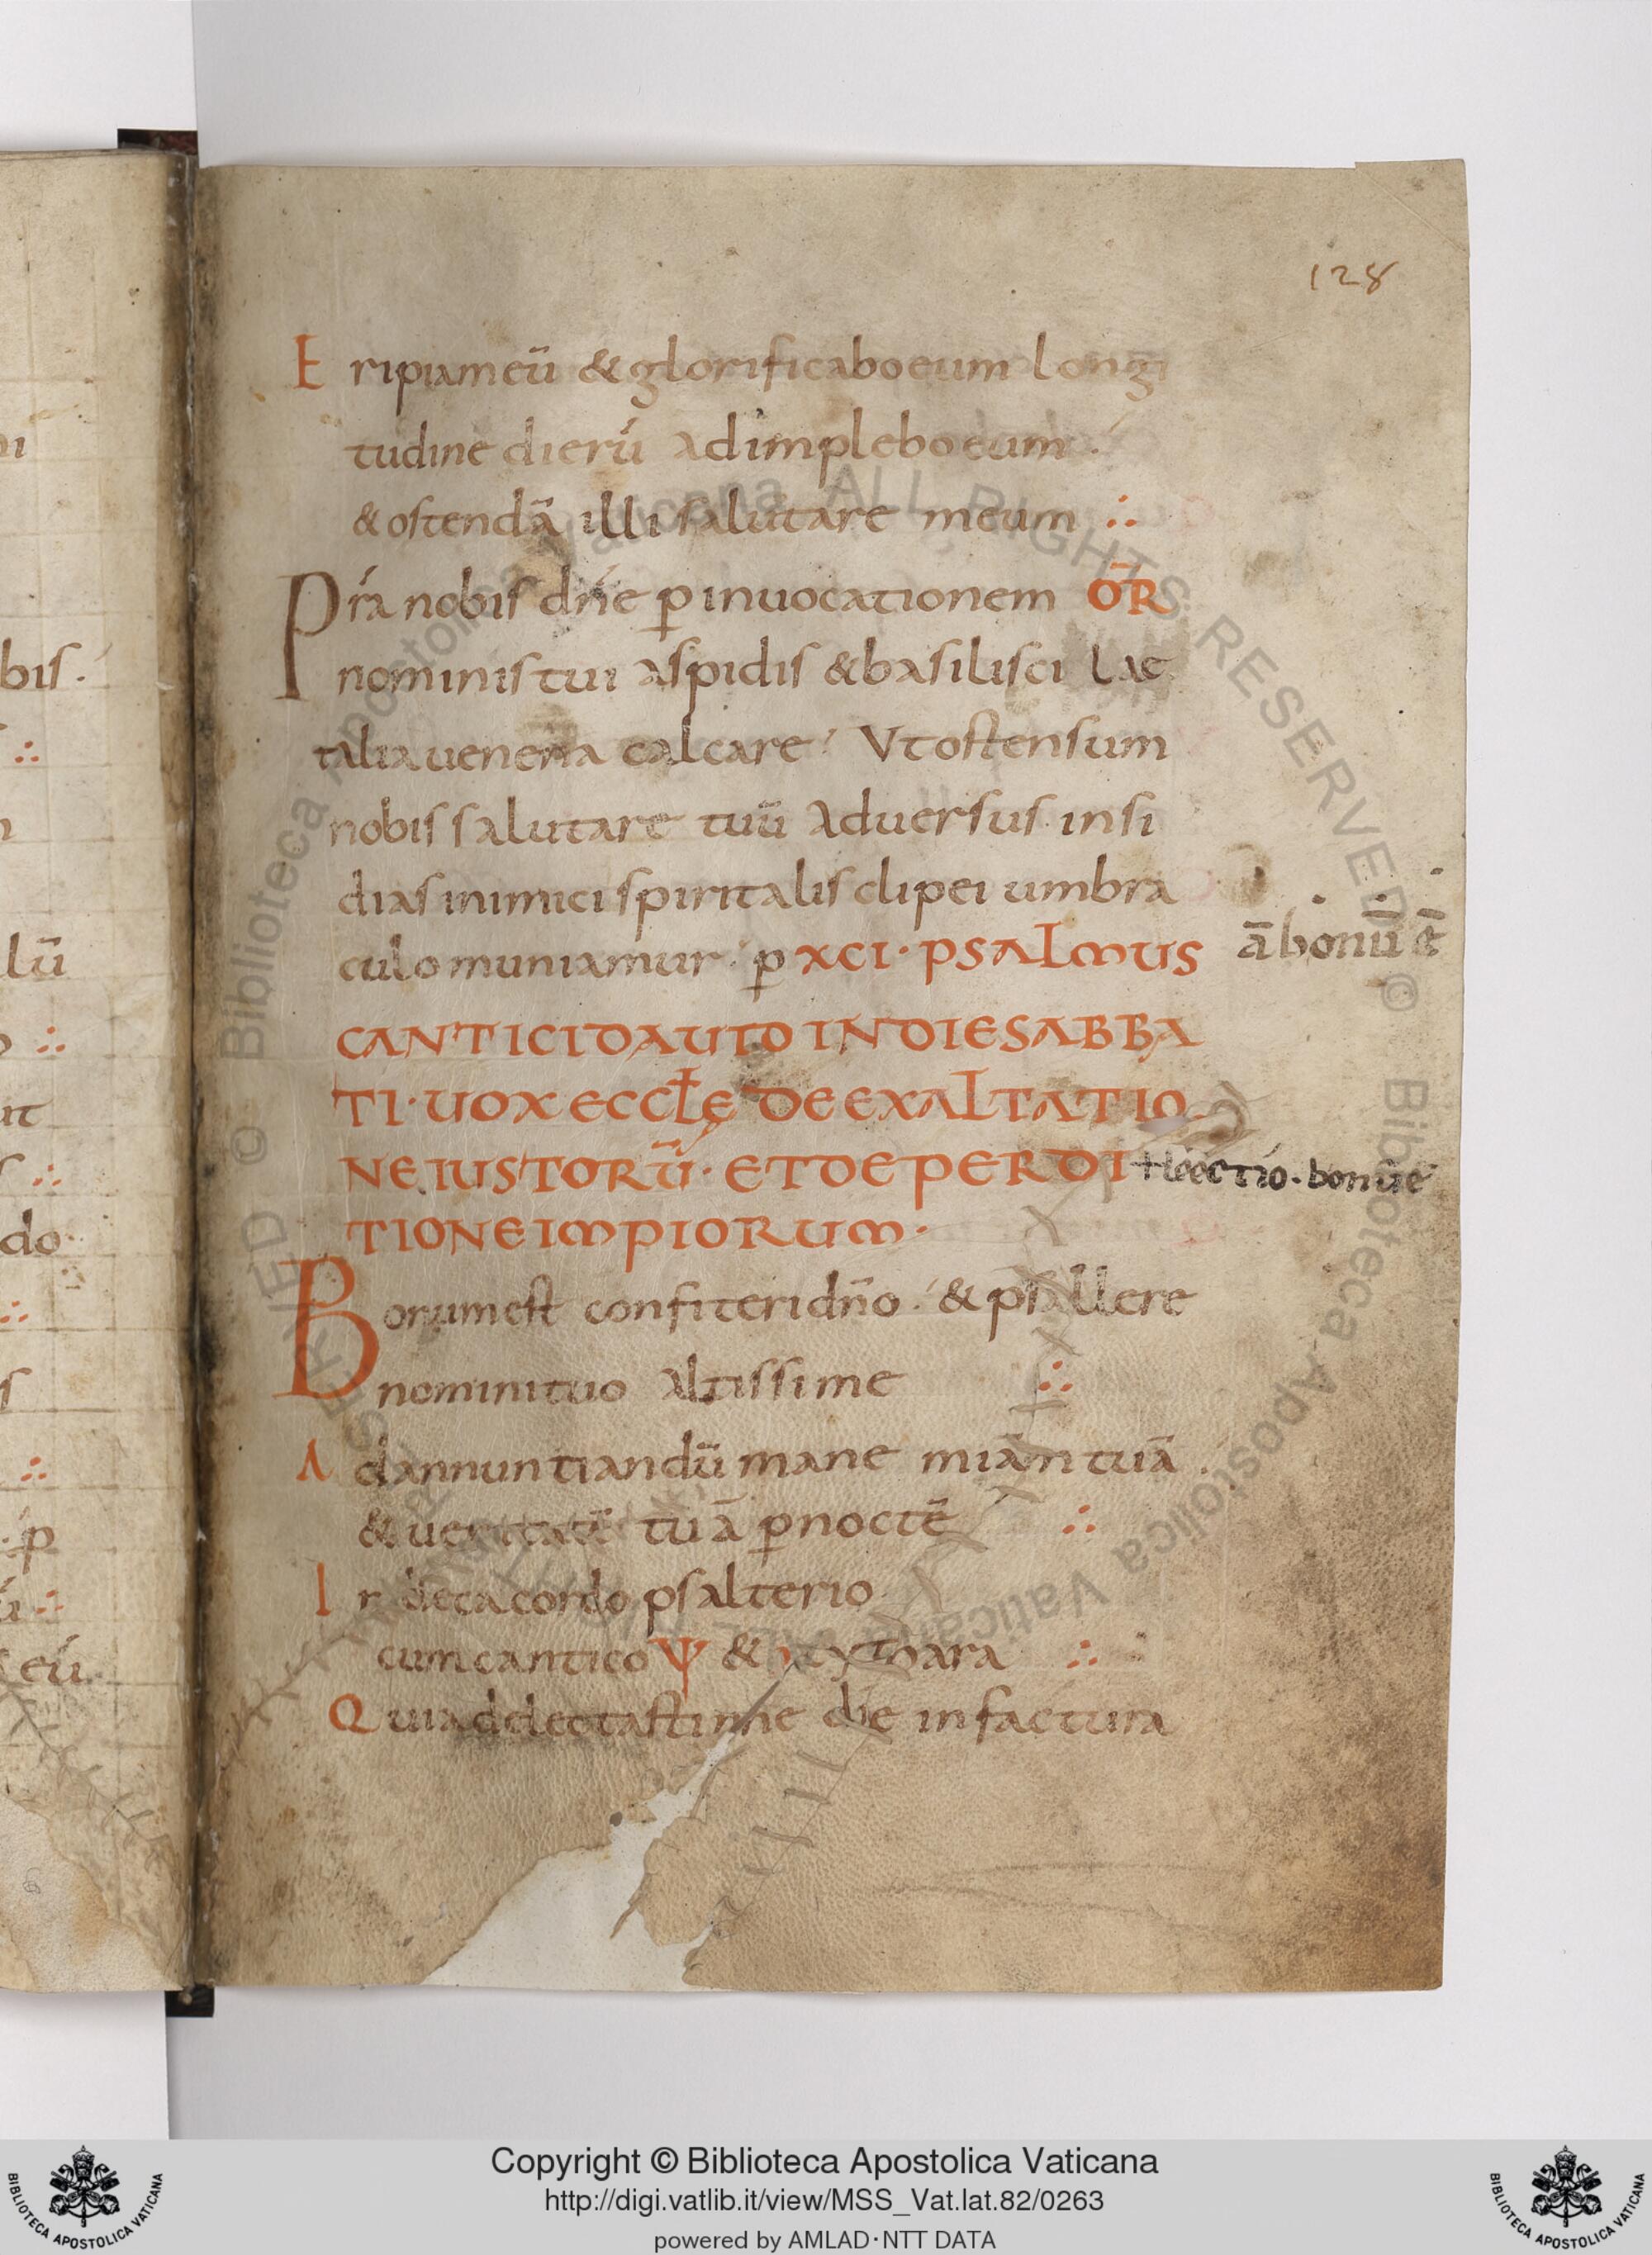 128
E ripiam eū & glorificabo eum longi
tudine dierū adimplebo eum.
& ostendā illi salutare meum ∴
P ŕa nobis dn̄e ꝑ inuocationem OR̄
nominis tui aspidis & basilisci lae
talia uenena calcare Vt ostensum
nobis salutare tuū aduersus insi
dias inimici spiritalis clipei umbra
culo muniamur ꝑ XCI· PSALMUS
ā bonū ē
CANTICI DAUID IN DIE SABBA
TI· UOX ECCLĘ DE EXALTATIO
NE IUSTORŪ· ET DE PERDI
lectio. bonūe
TIONE IMPIORUM·
B onum est confiteri dn̄o. & psallere
nomini tuo altissime ∴
A d annuntiandū mane miām tuā.
& ueritatē tuā ꝑ noctē ∴
I n decacordo psalterio
cum cantico Ψ & cythara ∴
Q uia delectasti me dn̄e in factura
bis.
lū
do
eū
Copyright © Biblioteca Apostolica Vaticana
http://digi.vatlib.it/view/MSS_Vat.lat.82/0263
powered by AMLAD·NTT DATA
BIBLIOTECA APOSTOLICA VATICANA
BIBLIOTECA APOSTOLICA VATICANA